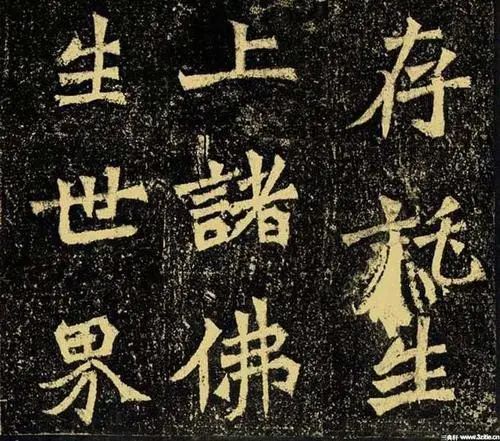 存托生
上諸佛
生世界
三典轩 www.3zitie.cn